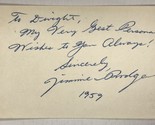 To Dwight,
My Very Best Personal
Wishes to You Always!
Sincerely
Jimmie Dodge
1959